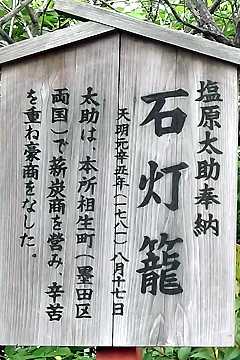 塩原太助奉納
石灯籠
天明元辛丑年(一七八一)八月十七日
太助は、本所相生町(墨田区
両国)で薪炭商を営み、辛苦
を重ね豪商をなした。